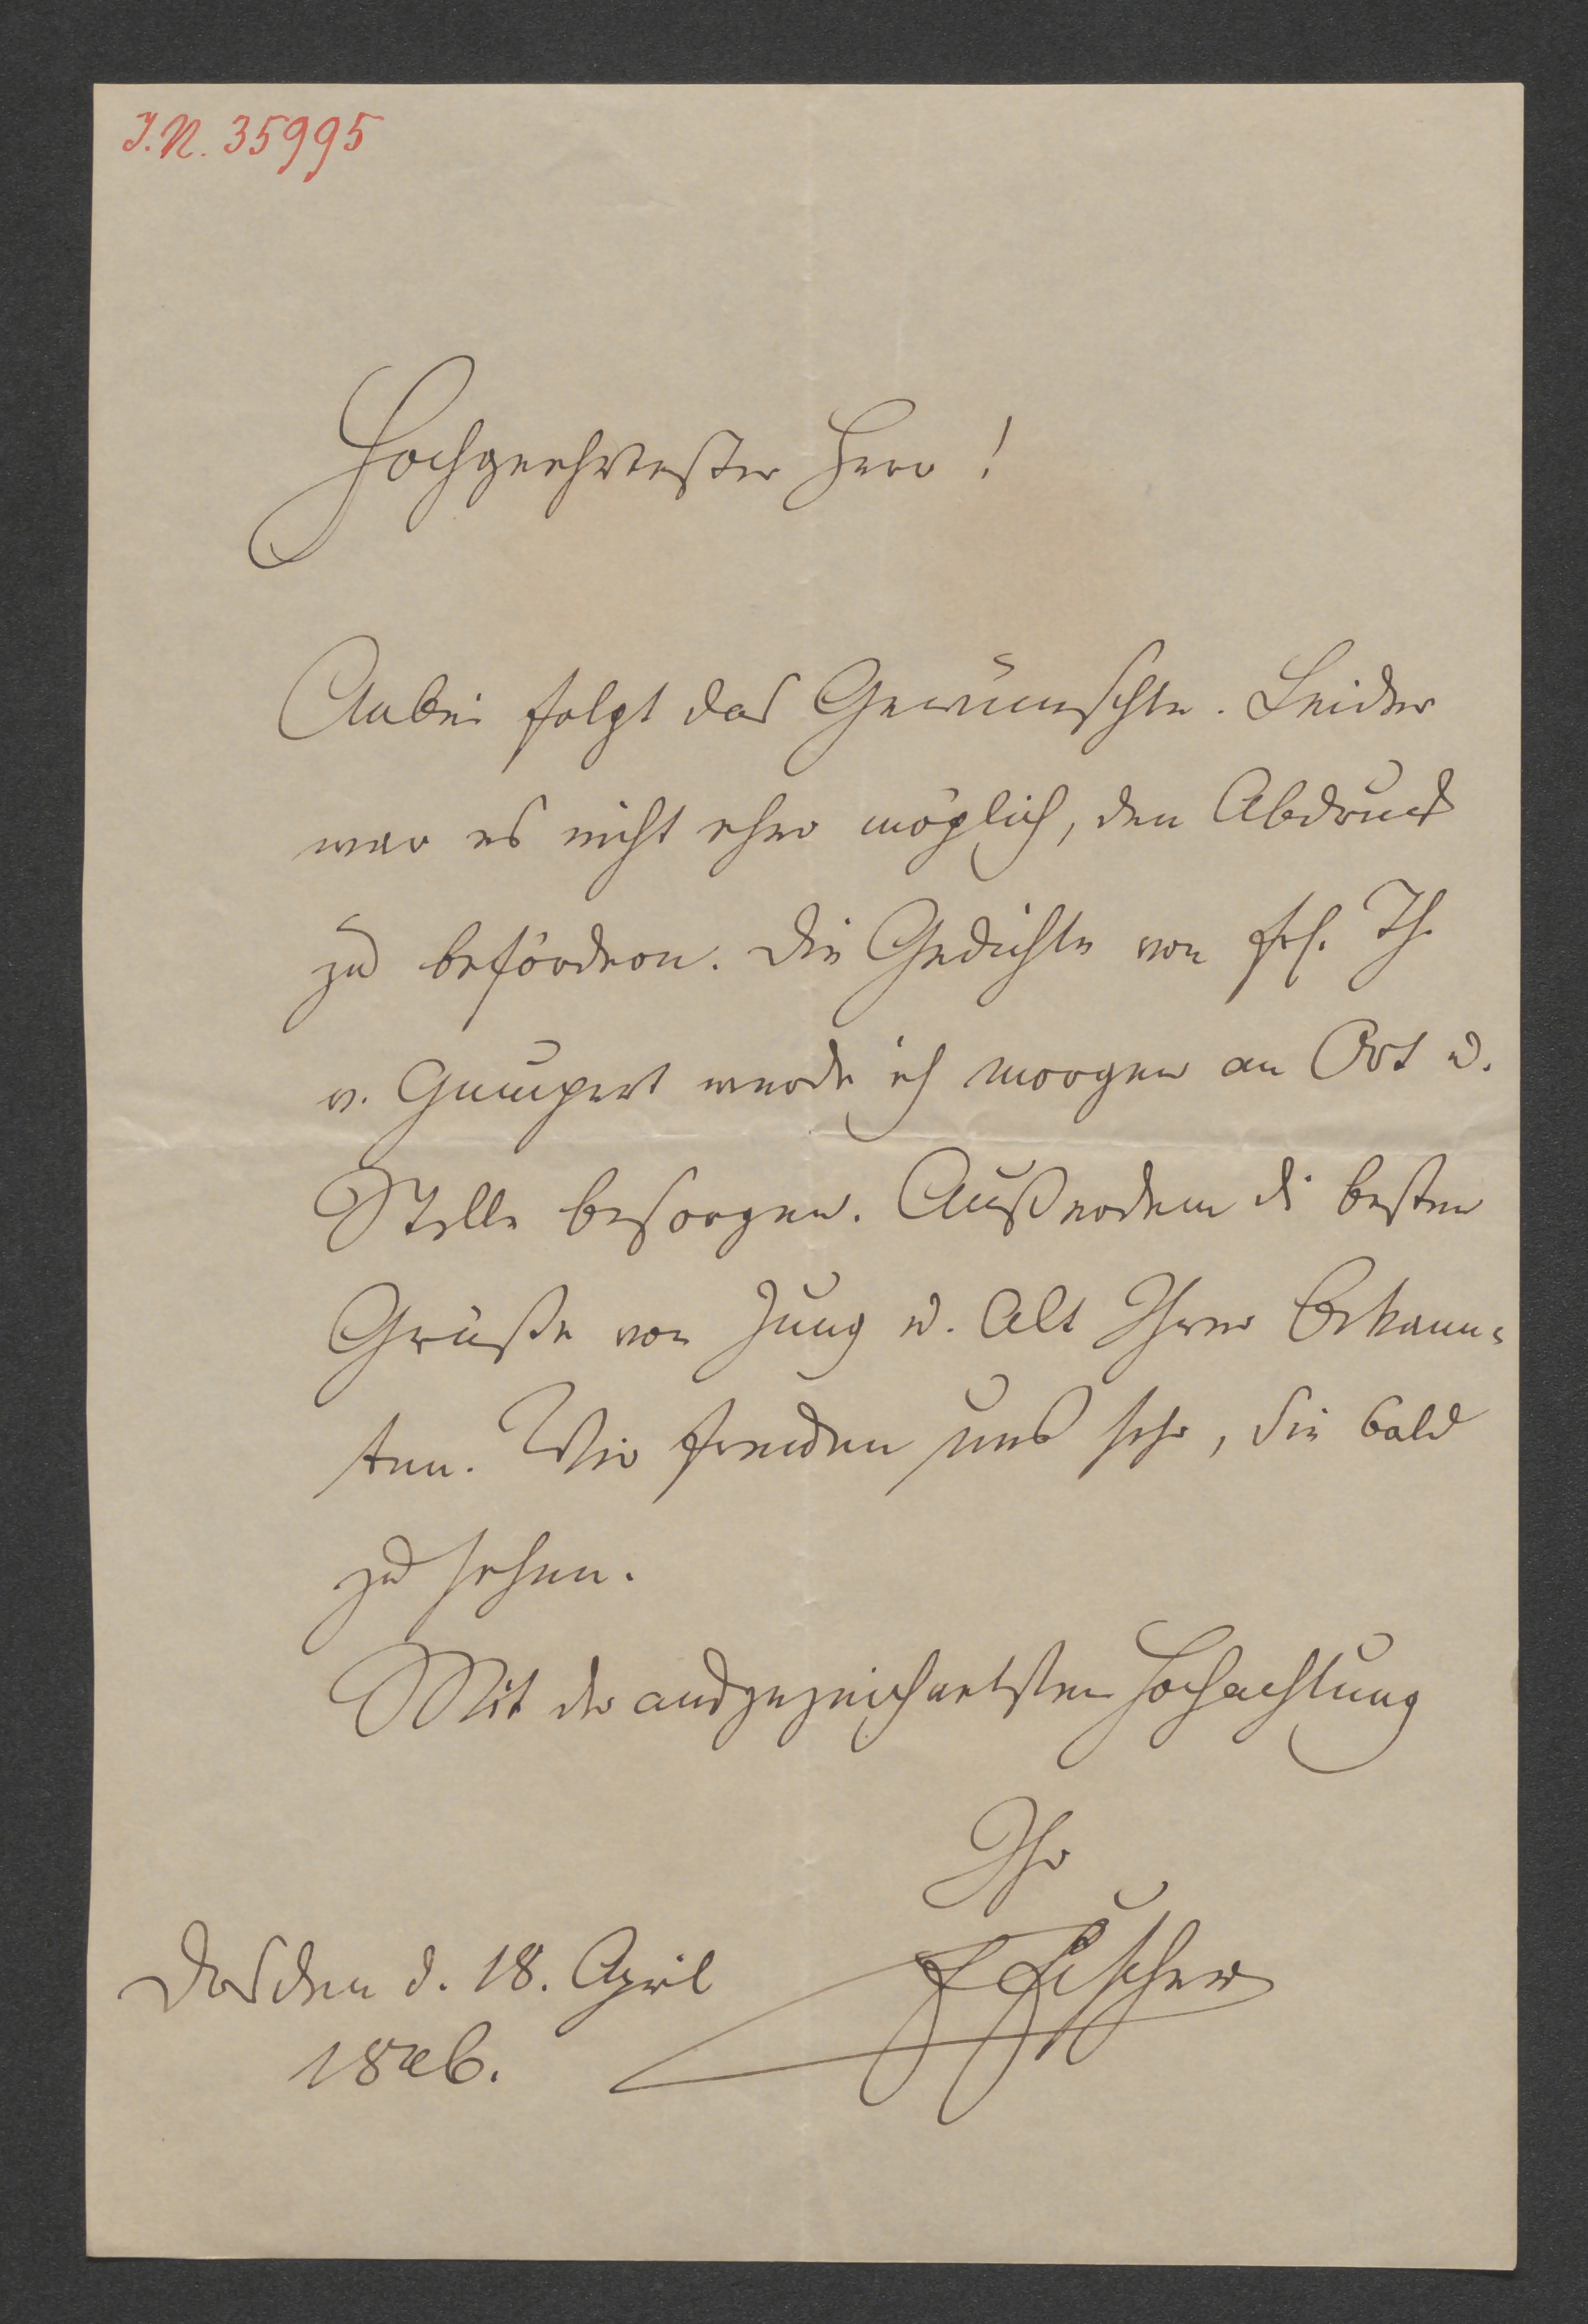 J.N. 35995
Hochgeehrtester Herr!
Anbei folgt das Gewünschte. Leider
war es nicht eher möglich, den Abdruck
zu befördern. Die Gedichte von Frl. Th.
v. Gumpert werde ich morgen an Ort u.
Stelle besorgen. Außerdem di besten
Grüße von Jung u. Alt Ihrer Bekann-
ten. Wir freuen uns sehr, Sie bald
zu sehen.
Mit der ausgezeichnetsten Hochachtung
Ihr
Fischer
Dresden d. 18. April